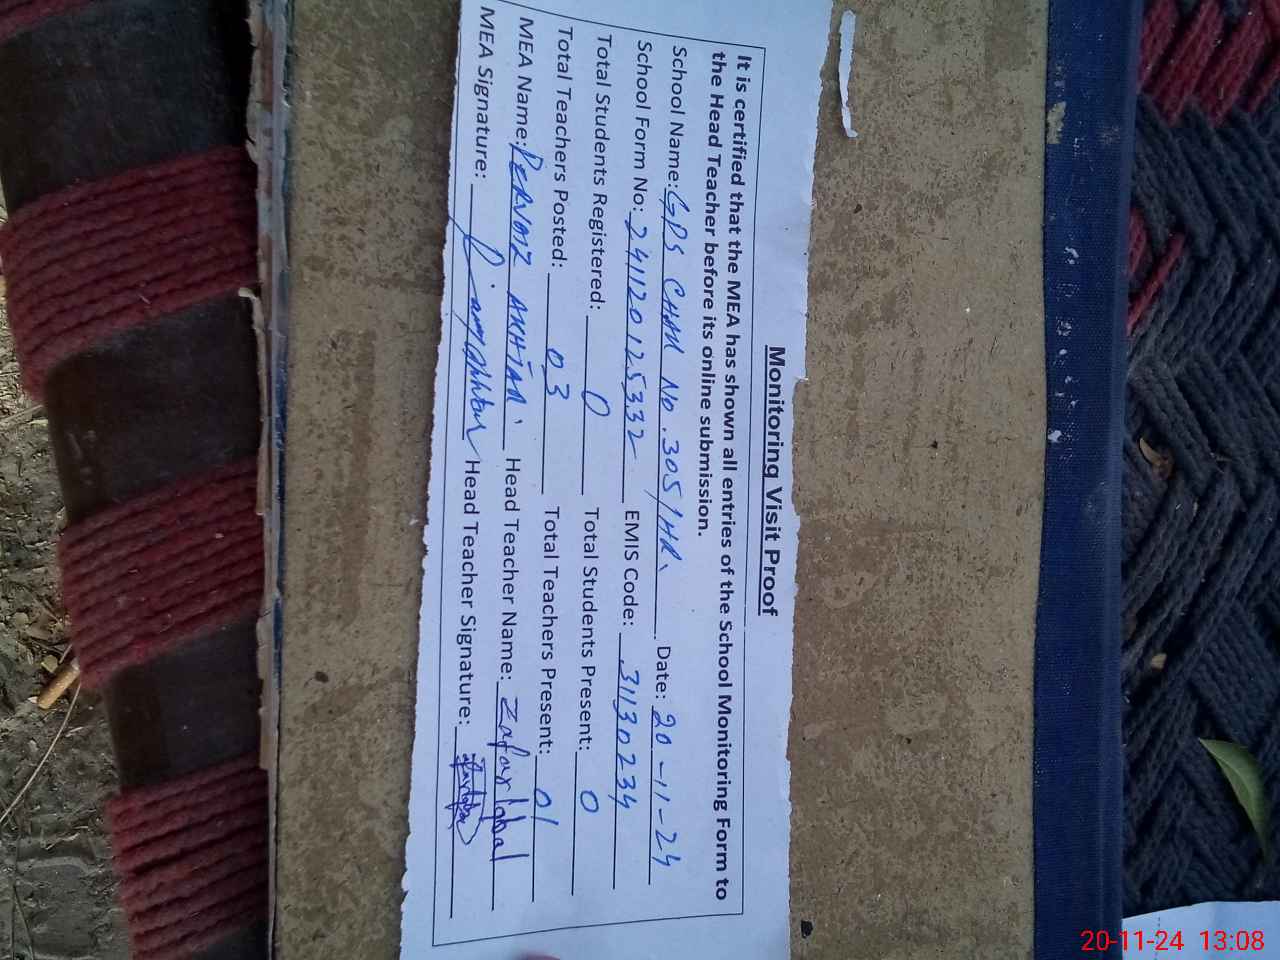 Monitoring Visit Proof
It is certified that the MEA has shown all entries of the School Monitoring Form to
the Head Teacher before its online submission.
School Name: GPS CHAK No. 305/HR. Date: 20-11-24
School Form No: 241120125332 EMIS Code: 31130234
Total Students Registered: 0 Total Students Present: 0
Total Teachers Posted: 03 Total Teachers Present: 01
MEA Name: PERVAIZ AKHTAR. Head Teacher Name: Zafar Iqbal
MEA Signature: Head Teacher Signature:
20-11-24 13:08